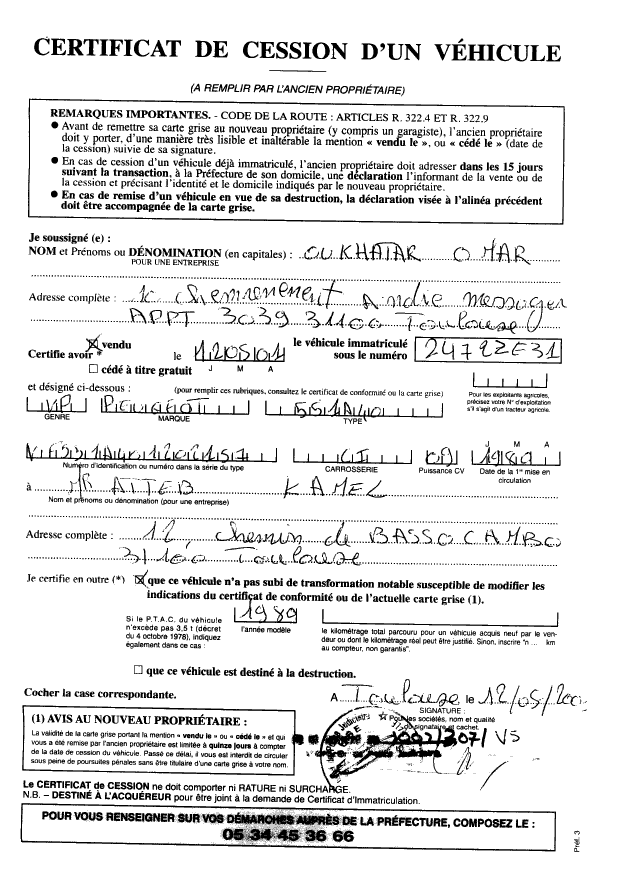 CERTIFICAT DE CESSION D'UN VÉHICULE
(A REMPLIR PAR L'ANCIEN PROPRIÉTAIRE)
REMARQUES IMPORTANTES. - CODE DE LA ROUTE : ARTICLES R. 322.4 ET R. 322.9
● Avant de remettre sa carte grise au nouveau propriétaire (y compris un garagiste), l'ancien propriétaire
doit y porter, d'une manière très lisible et inaltérable la mention « vendu le », ou « cédé le » (date de
la cession) suivie de sa signature.
● En cas de cession d'un véhicule déjà immatriculé, l'ancien propriétaire doit adresser dans les 15 jours
suivant la transaction, à la Préfecture de son domicile, une déclaration l'informant de la vente ou de
la cession et précisant l'identité et le domicile indiqués par le nouveau propriétaire.
● En cas de remise d'un véhicule en vue de sa destruction, la déclaration visée à l'alinéa précédent
doit être accompagnée de la carte grise.
Je soussigné (e) :
NOM et Prénoms ou DÉNOMINATION (en capitales) : OUKHATAR OMAR
POUR UNE ENTREPRISE
Adresse complète : 10 cheminement Andre messager
APPT 3039 31100 Toulouse
Certifie avoir * ☒ vendu le 120501 le véhicule immatriculé sous le numéro 2479ZE31
☐ cédé à titre gratuit J M A
et désigné ci-dessous : (pour remplir ces rubriques, consultez le certificat de conformité ou la carte grise)
Pour les exploitants agricoles,
précisez votre N° d'exploitation
s'il s'agit d'un tracteur agricole.
VP PEUGEOT
GENRE MARQUE TYPE
CI 1989
Numéro d'identification ou numéro dans la série du type CARROSSERIE Puissance CV J M A Date de la 1re mise en circulation
à MR ATTEB KAMEL
Nom et prénoms ou dénomination (pour une entreprise)
Adresse complète : 12, chemin de BASSO CAMBO
31100 Toulouse
Je certifie en outre (*) ☒ que ce véhicule n'a pas subi de transformation notable susceptible de modifier les
indications du certificat de conformité ou de l'actuelle carte grise (1).
Si le P.T.A.C. du véhicule
n'excède pas 3,5 t (décret
du 4 octobre 1978), indiquez
également dans ce cas :
1989
l'année modèle
le kilométrage total parcouru pour un véhicule acquis neuf par le ven-
deur ou dont le kilométrage réel peut être justifié. Sinon, inscrire "n ... km
au compteur, non garantis".
☐ que ce véhicule est destiné à la destruction.
Cocher la case correspondante.
A Toulouse le 12/05/200
SIGNATURE :
Pour les sociétés, nom et qualité
du signataire et cachet.
1002/207/VS
(1) AVIS AU NOUVEAU PROPRIÉTAIRE :
La validité de la carte grise portant la mention « vendu le » ou « cédé le » et qui
vous a été remise par l'ancien propriétaire est limitée à quinze jours à compter
de la date de cession du véhicule. Passé ce délai, il vous est interdit de circuler
sous peine de poursuites pénales sans être titulaire d'une carte grise à votre nom.
Le CERTIFICAT de CESSION ne doit comporter ni RATURE ni SURCHARGE.
N.B. – DESTINÉ À L'ACQUÉREUR pour être joint à la demande de Certificat d'Immatriculation.
POUR VOUS RENSEIGNER SUR VOS DÉMARCHES AUPRÈS DE LA PRÉFECTURE, COMPOSEZ LE :
05 34 45 36 66
Pref. 3